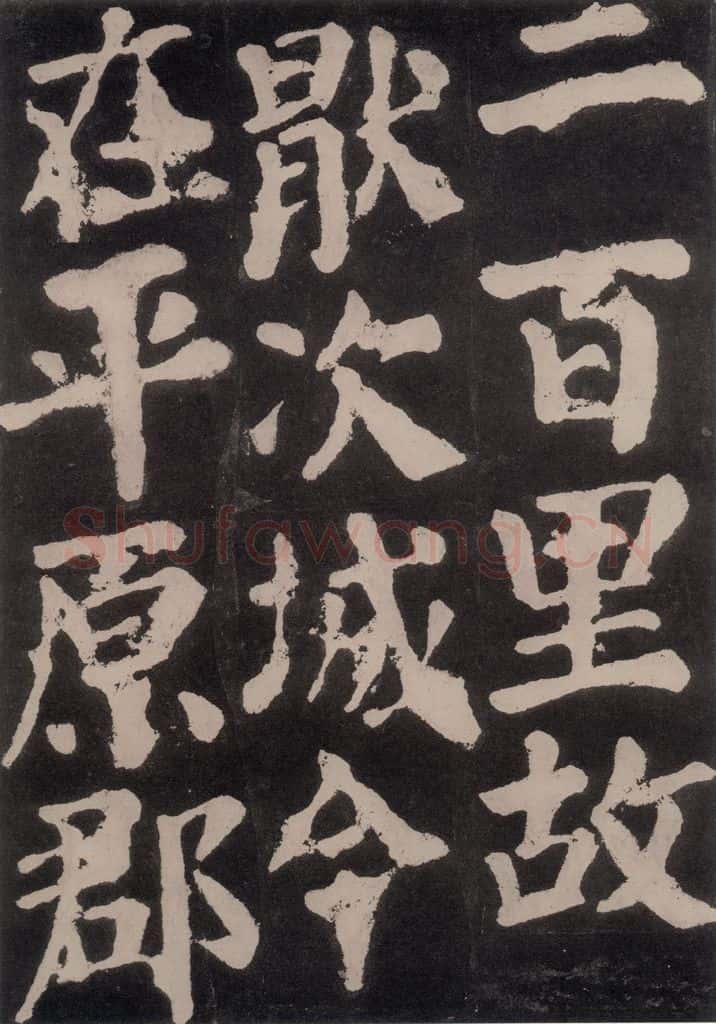 二百里故
猒次城今
在平原郡
Shufawang.CN